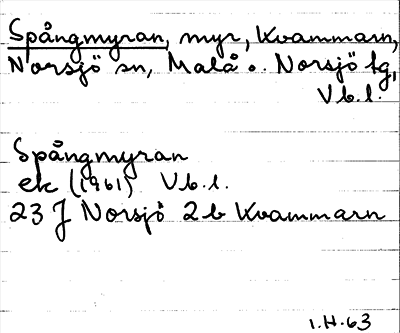 Spångmyran, myr, Kvammarn,
Norsjö sn, Malå o. Norsjö tg,
Vb.l.
Spångmyran
ek (1961) Vb.l.
23 J Norsjö 2b Kvammarn
I.H.63